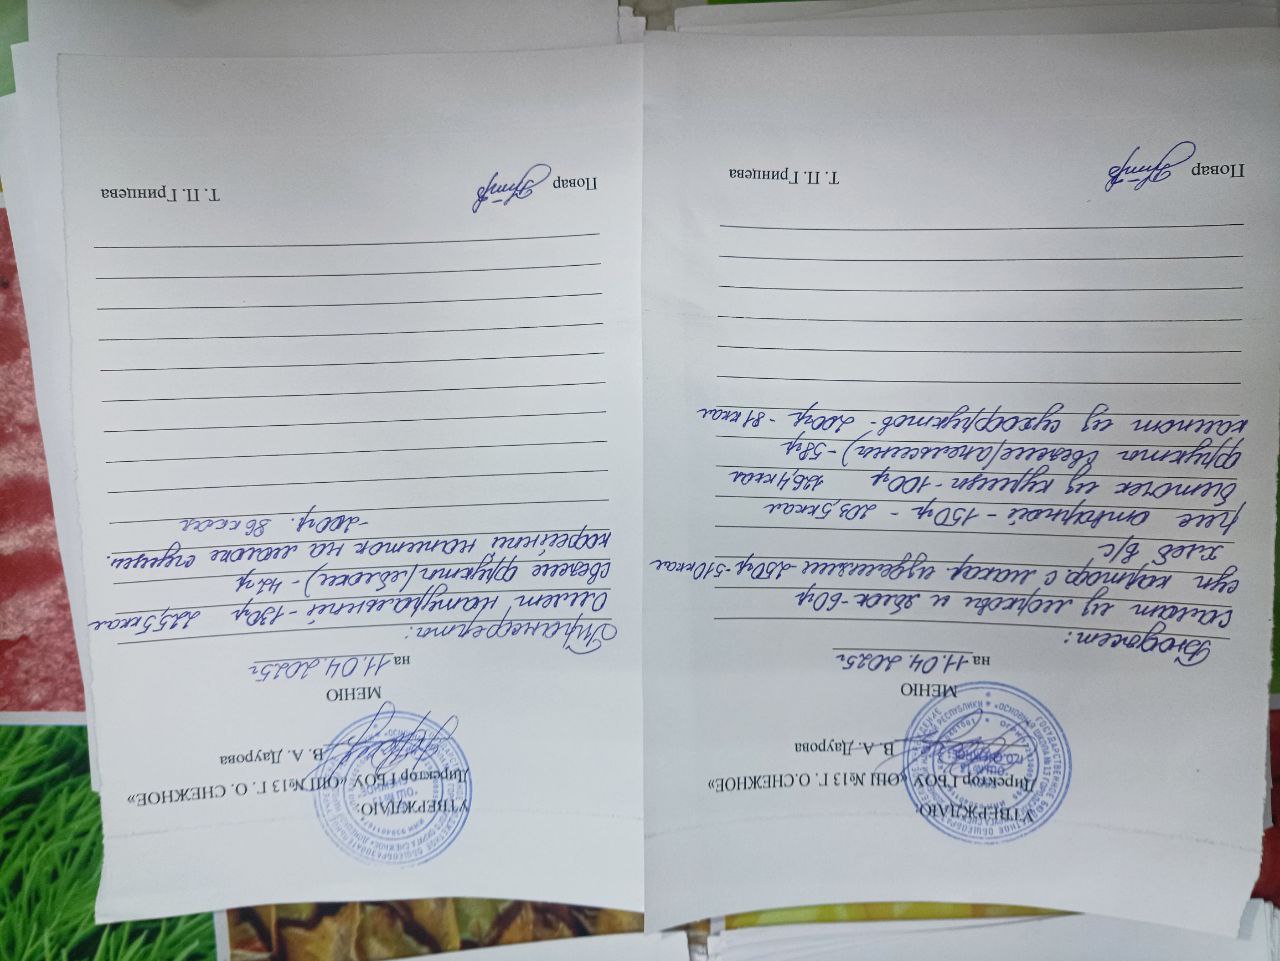 УТВЕРЖДАЮ
Директор ГБОУ «ОШ №13 Г. О. СНЕЖНОЕ»
В. А. Даурова
МЕНЮ
на 11.04.2025г
Бюджет:
салат из моркови и яблок-60гр
суп картоф. с макар. изделиями-250гр-510ккал
хлеб в/с
рис отварной - 150гр - 203,5ккал
биточек из курицы-100гр 126,4ккал
фрукты свежие(апельсины)-58гр
компот из сухофруктов-200гр-81ккал
Повар
Т. П. Гринцева
УТВЕРЖДАЮ
Директор ГБОУ «ОШ №13 Г. О. СНЕЖНОЕ»
В. А. Даурова
МЕНЮ
на 11.04.2025г
Трансферты:
Омлет натуральный-130гр 225,5ккал
свежие фрукты(яблоки)-42гр
кофейный напиток на молоке сгущен.
-200гр. 86ккал
Повар
Т. П. Гринцева